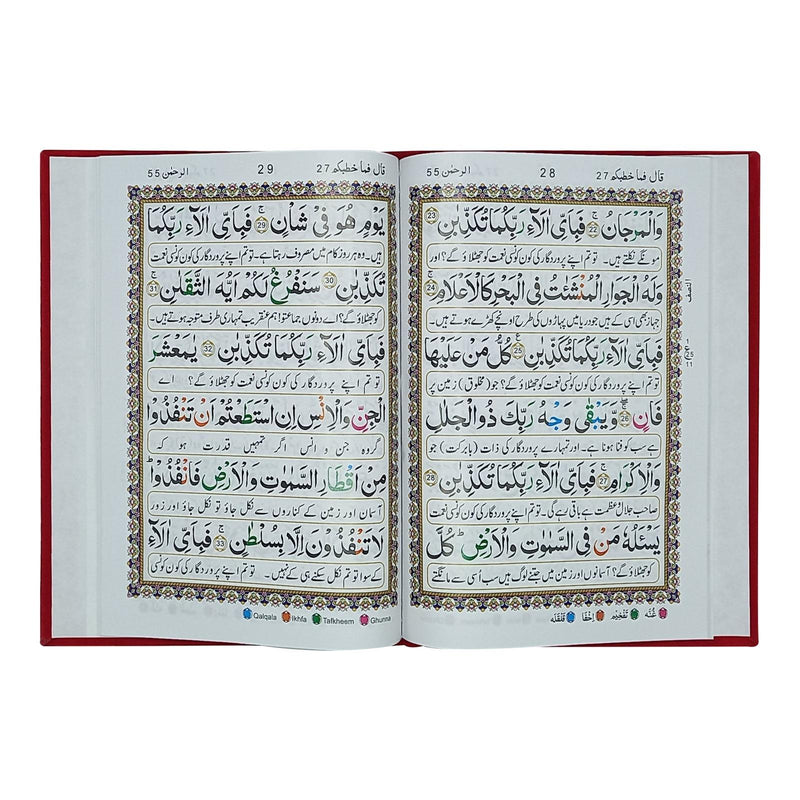 قال فما خطبكم 27
28
الرحمٰن 55
وَالْمَرْجَانُ ۚ ﴿22﴾ فَبِاَیِّ اٰلَآءِ رَبِّكُمَا تُكَذِّبٰنِ ﴿23﴾
مونگے نکلتے ہیں۔ تو تم اپنے پروردگار کی کون کونسی نعمت کو جھٹلاؤ گے؟ اور
وَلَهُ الْجَوَارِ الْمُنْشَئٰتُ فِی الْبَحْرِ كَالْاَعْلَامِ ۚ ﴿24﴾
جہاز بھی اسی کے ہیں جو دریا میں پہاڑوں کی طرح اونچے کھڑے ہوتے ہیں۔
فَبِاَیِّ اٰلَآءِ رَبِّكُمَا تُكَذِّبٰنِ ﴿25﴾ كُلُّ مَنْ عَلَیْهَا
تو تم اپنے پروردگار کی کون کونسی نعمت کو جھٹلاؤ گے؟ جو (مخلوق) زمین پر
فَانٍ ﴿26﴾ وَّیَبْقٰی وَجْهُ رَبِّكَ ذُو الْجَلٰلِ
ہے سب کو فنا ہونا ہے۔ اور تمہارے پروردگار کی ذات (بابرکت) جو
وَالْاِكْرَامِ ۚ ﴿27﴾ فَبِاَیِّ اٰلَآءِ رَبِّكُمَا تُكَذِّبٰنِ ﴿28﴾
صاحب جلال و عظمت ہے باقی رہے گی۔ تو تم اپنے پروردگار کی کون کونسی نعمت
یَسْـَٔلُهٗ مَنْ فِی السَّمٰوٰتِ وَالْاَرْضِ ؕ كُلَّ
کو جھٹلاؤ گے؟ آسمانوں اور زمین میں جتنے لوگ ہیں سب اسی سے مانگتے
النصف
غُنّہ تَفْخِیْم اِخْفَا قَلْقَلہ
قال فما خطبكم 27
29
الرحمٰن 55
یَوْمٍ هُوَ فِیْ شَاْنٍ ۚ ﴿29﴾ فَبِاَیِّ اٰلَآءِ رَبِّكُمَا
ہیں۔ وہ ہر روز کام میں مصروف رہتا ہے۔ تو تم اپنے پروردگار کی کون کونسی نعمت
تُكَذِّبٰنِ ﴿30﴾ سَنَفْرُغُ لَكُمْ اَیُّهَ الثَّقَلٰنِ ۚ ﴿31﴾
کو جھٹلاؤ گے؟ اے دونوں جماعتو! ہم عنقریب تمہاری طرف متوجہ ہوتے ہیں۔
فَبِاَیِّ اٰلَآءِ رَبِّكُمَا تُكَذِّبٰنِ ﴿32﴾ یٰمَعْشَرَ
تو تم اپنے پروردگار کی کون کونسی نعمت کو جھٹلاؤ گے؟ اے
الْجِنِّ وَالْاِنْسِ اِنِ اسْتَطَعْتُمْ اَنْ تَنْفُذُوْا
گروہ جن و انس اگر تمہیں قدرت ہو کہ
مِنْ اَقْطَارِ السَّمٰوٰتِ وَالْاَرْضِ فَانْفُذُوْا ؕ
آسمان اور زمین کے کناروں سے نکل جاؤ تو نکل جاؤ اور زور
لَا تَنْفُذُوْنَ اِلَّا بِسُلْطٰنٍ ۚ ﴿33﴾ فَبِاَیِّ اٰلَآءِ
کے سوا تو تم نکل سکتے ہی کے نہیں۔ تو تم اپنے پروردگار کی کون کونسی
Qalqala Ikhfa Tafkheem Ghunna